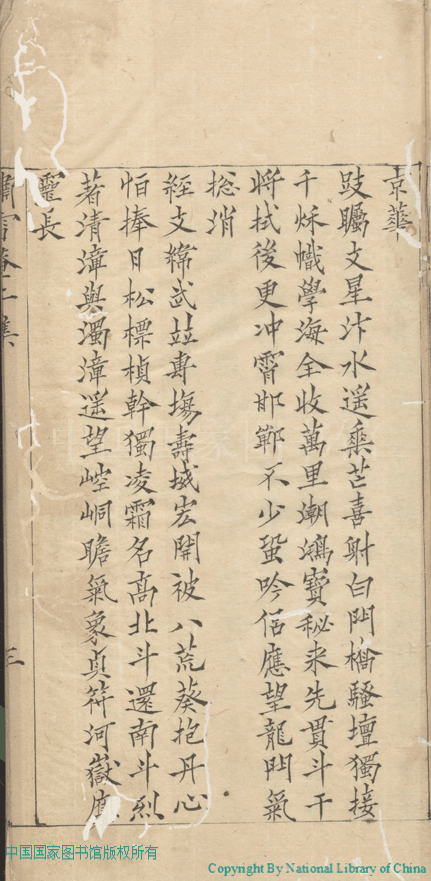 京華
跂矚文星汴水遥乘芒喜射白門橋騷壇獨接
千秌幟學海全收萬里潮鴻寶秘来先貫斗干
将拭後更冲霄邯鄲不少蛩吟侣應望龍門氣
捴消
經文緯武竝專塲壽域宏開被八荒葵抱丹心
恒捧日松標楨幹獨凌霜名高北斗還南斗烈
著清漳與濁漳遥望崆峒瞻氣象貞符河嶽應
靈長
嘯雪菴二集 三
中国国家图书馆版权所有
Copyright By National Library of China